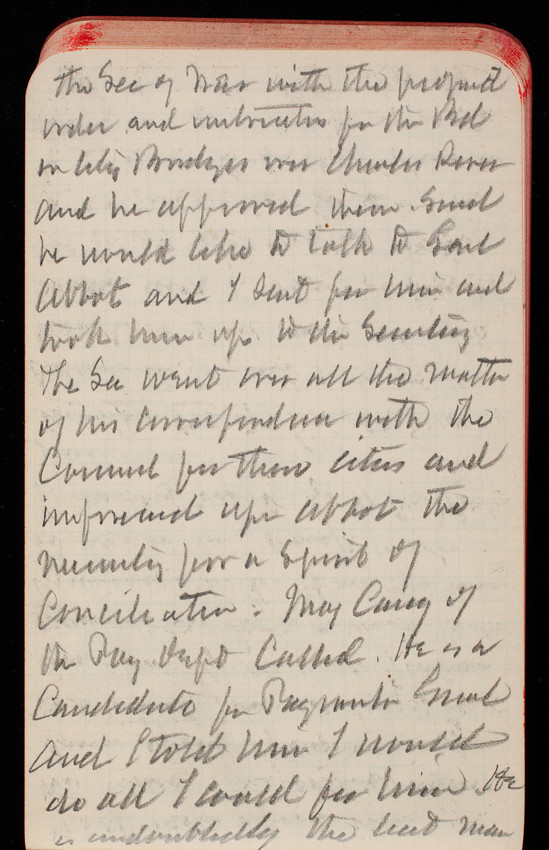 the Sec of War with the proposed
order and instructions for the Bd
on City Bridges over Charles River
and he approved them. Said
he would like to talk to Genl
Abbot and I sent for him and
took him up to the Secretary
The Sec went over all the matter
of his correspondence with the
Counsel for these cities and
impressed upon Abbot the
necessity for a spirit of
Conciliation. Maj Carey of
the Pay Dept Called. He is a
Candidate for Paymaster Genl
and I told him I would
do all I could for him. He
is undoubtedly the best man